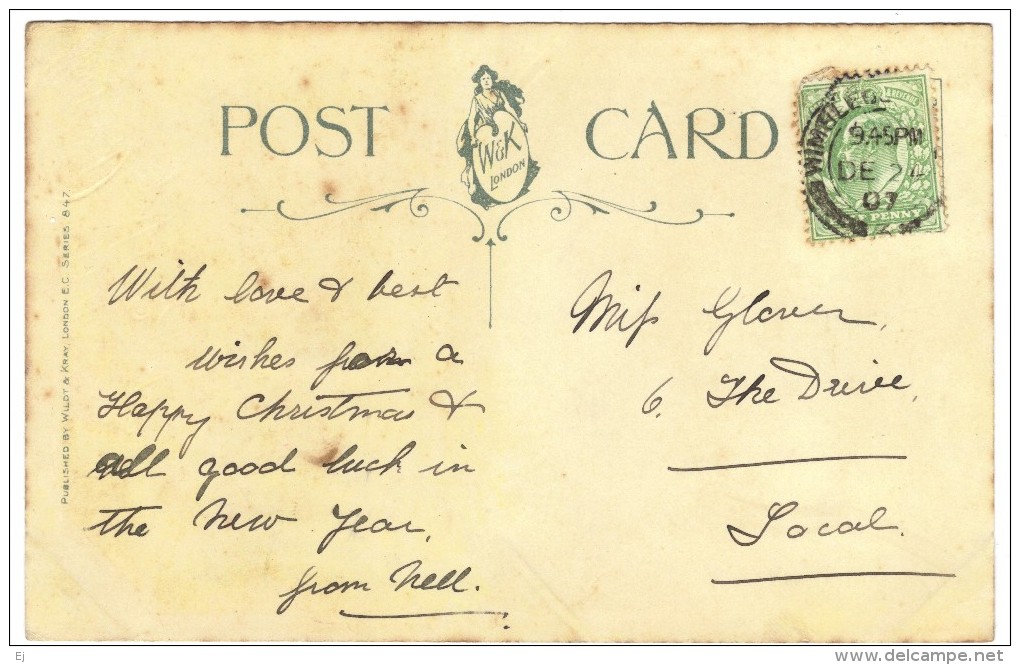 POST CARD
W&K
LONDON
WIMBLEDO
9.45PM
DE 24
07
& REVENUE
PENNY
PUBLISHED BY WILDT & KRAY, LONDON E.C. SERIES 847
With love & best
wishes for a
Happy Christmas &
all good luck in
the New Year,
from Nell.
Miss Glover,
6. The Drive,
Local.
Ej
delcampe.net